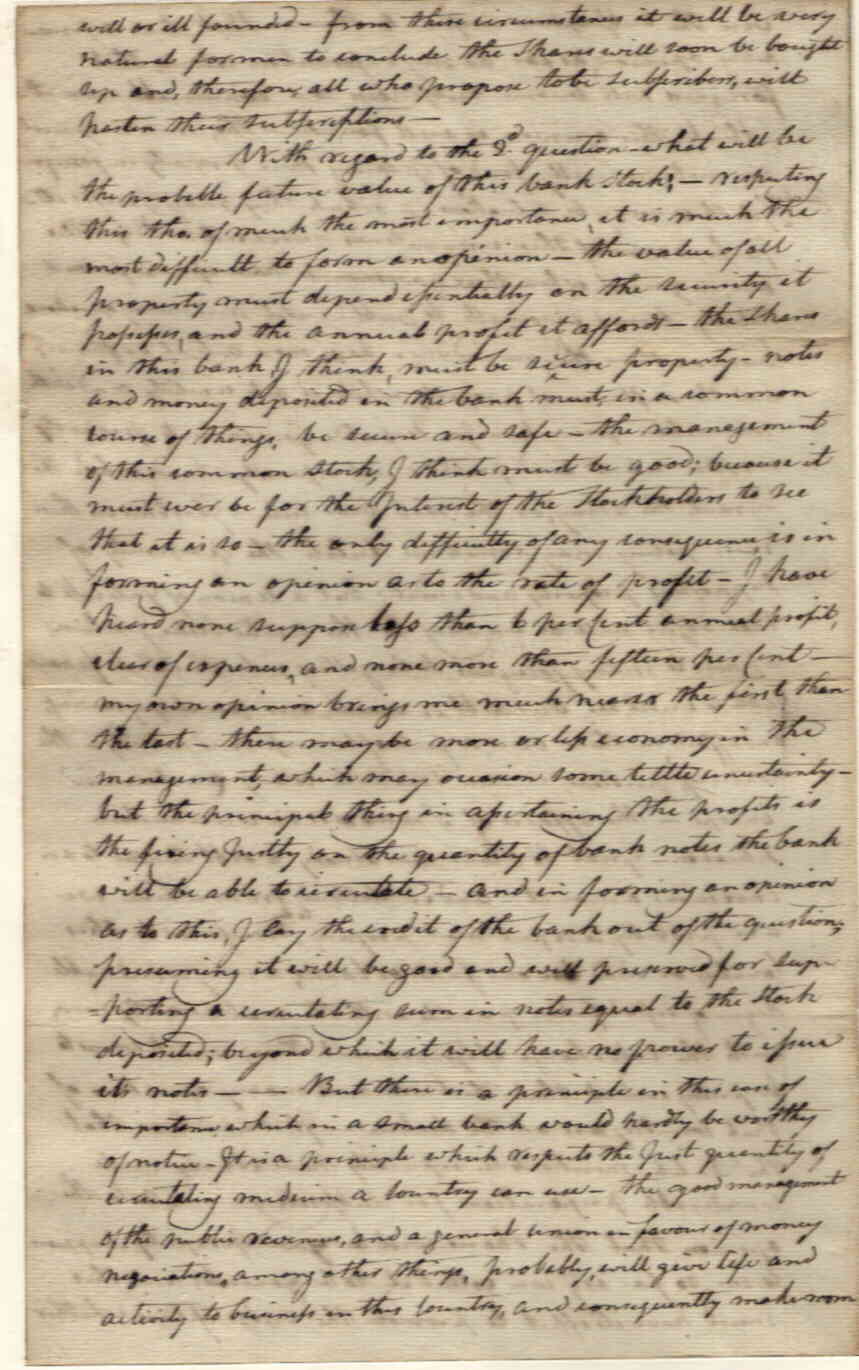 well or ill founded – from these circumstances it will be very
natural for men to conclude the Shares will soon be bought
up and, therefore, all who propose to be subscribers, will
hasten their subscriptions —
With regard to the 2d. question – what will be
the probable future value of this bank stock? – respecting
this tho. of much the most importance, it is much the
most difficult to form an opinion – the value of all
property must depend essentially on the security it
possesses, and the annual profit it affords – the Shares
in this bank, I think, must be secure property – notes
and money deposited in the bank must, in a common
course of things, be secure and safe – the management
of this common stock, I think must be good; because it
must ever be for the Interest of the Stockholders to see
that it is so – the only difficulty of any consequence is in
forming an opinion as to the rate of profit – I have
heard none suppose less than 6 per Cent annual profit,
clear of expences, and none more than fifteen per Cent –
my own opinion brings me much nearer the first, than
the last – there may be more or less economy in the
management, which may occasion some little uncertainty –
but the principal thing in ascertaining the profits is
the fixing Justly on the quantity of bank notes the bank
will be able to circulate – and in forming an opinion
as to this, I lay the credit of the bank out of the question;
presuming it will be good and well preserved for sup-
-porting a circulating sum in notes equal to the Stock
deposited; beyond which it will have no power to issue
its notes – — But there is a principle in this case of
importance which in a small bank would hardly be worthy
of notice – It is a principle which respects the Just quantity of
circulating medium a Country can use – the good management
of the public revenues, and a general union in favour of money
negociations, among other things, probably, will give life and
activity to business in this Country, and consequently make room